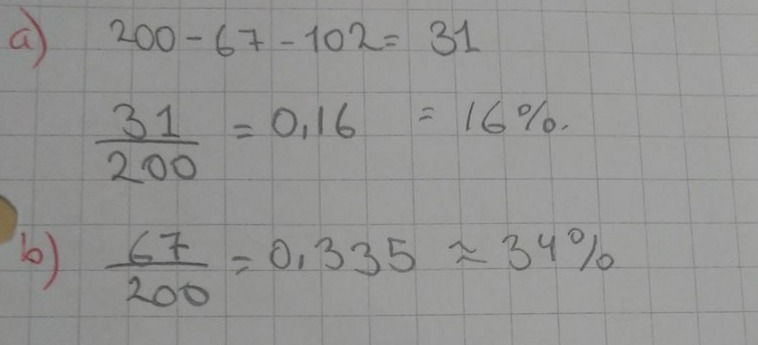 a) 200 - 67 - 102 = 31
31/200 = 0,16 = 16%.
b) 67/200 = 0,335 ≈ 34%